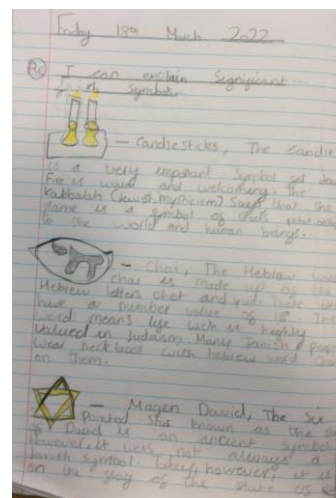 Friday 18th March 2022
Re I can explain Significant
Jewish Symbols.
- Candlesticks, The candle
is a very important Symbol
Fire is warm and welcoming. The
Kabbalah (Jewish Mysticism) Says that the
flame is a symbol of God's
to the world and human beings.
- Chai, The Hebrew
chai is made up of the
Hebrew letters chet and yud. These
have a number value of 18 The
word means life wich is heghly
Valued in Judaism. Many Jewish
wear necklaces with hebrew word
on them.
- Magen Dawid, The Six
pointed star known as the
of David is an ancient symbol.
However, it was not always a
Jewish symbol. Today, however, it
on the flag of the state of